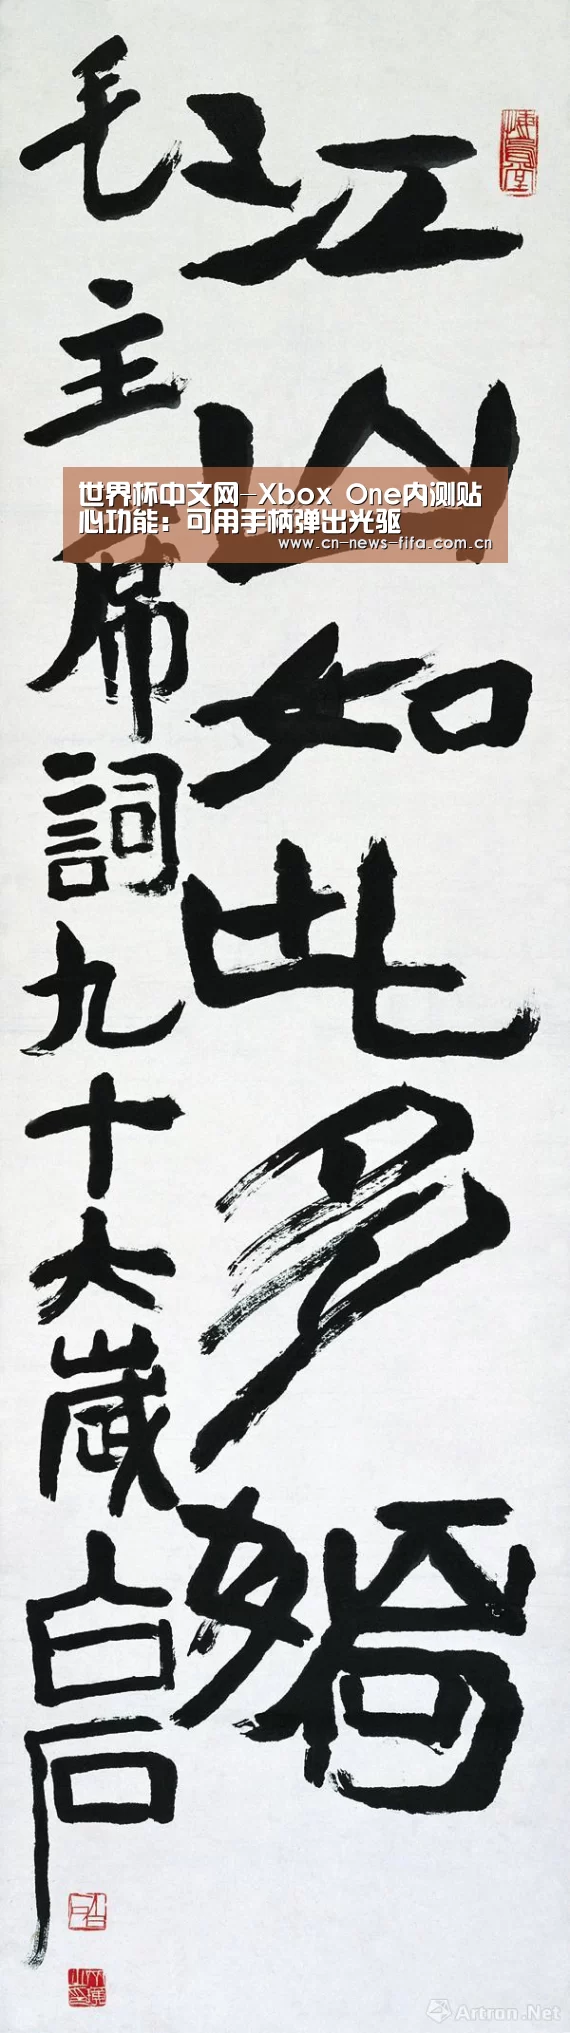 江山如此多嬌
毛主席詞九十六歲白石
世界杯中文网-Xbox One内测贴
心功能：可用手柄弹出光驱
www.cn-news-fifa.com.cn
Artron.Net